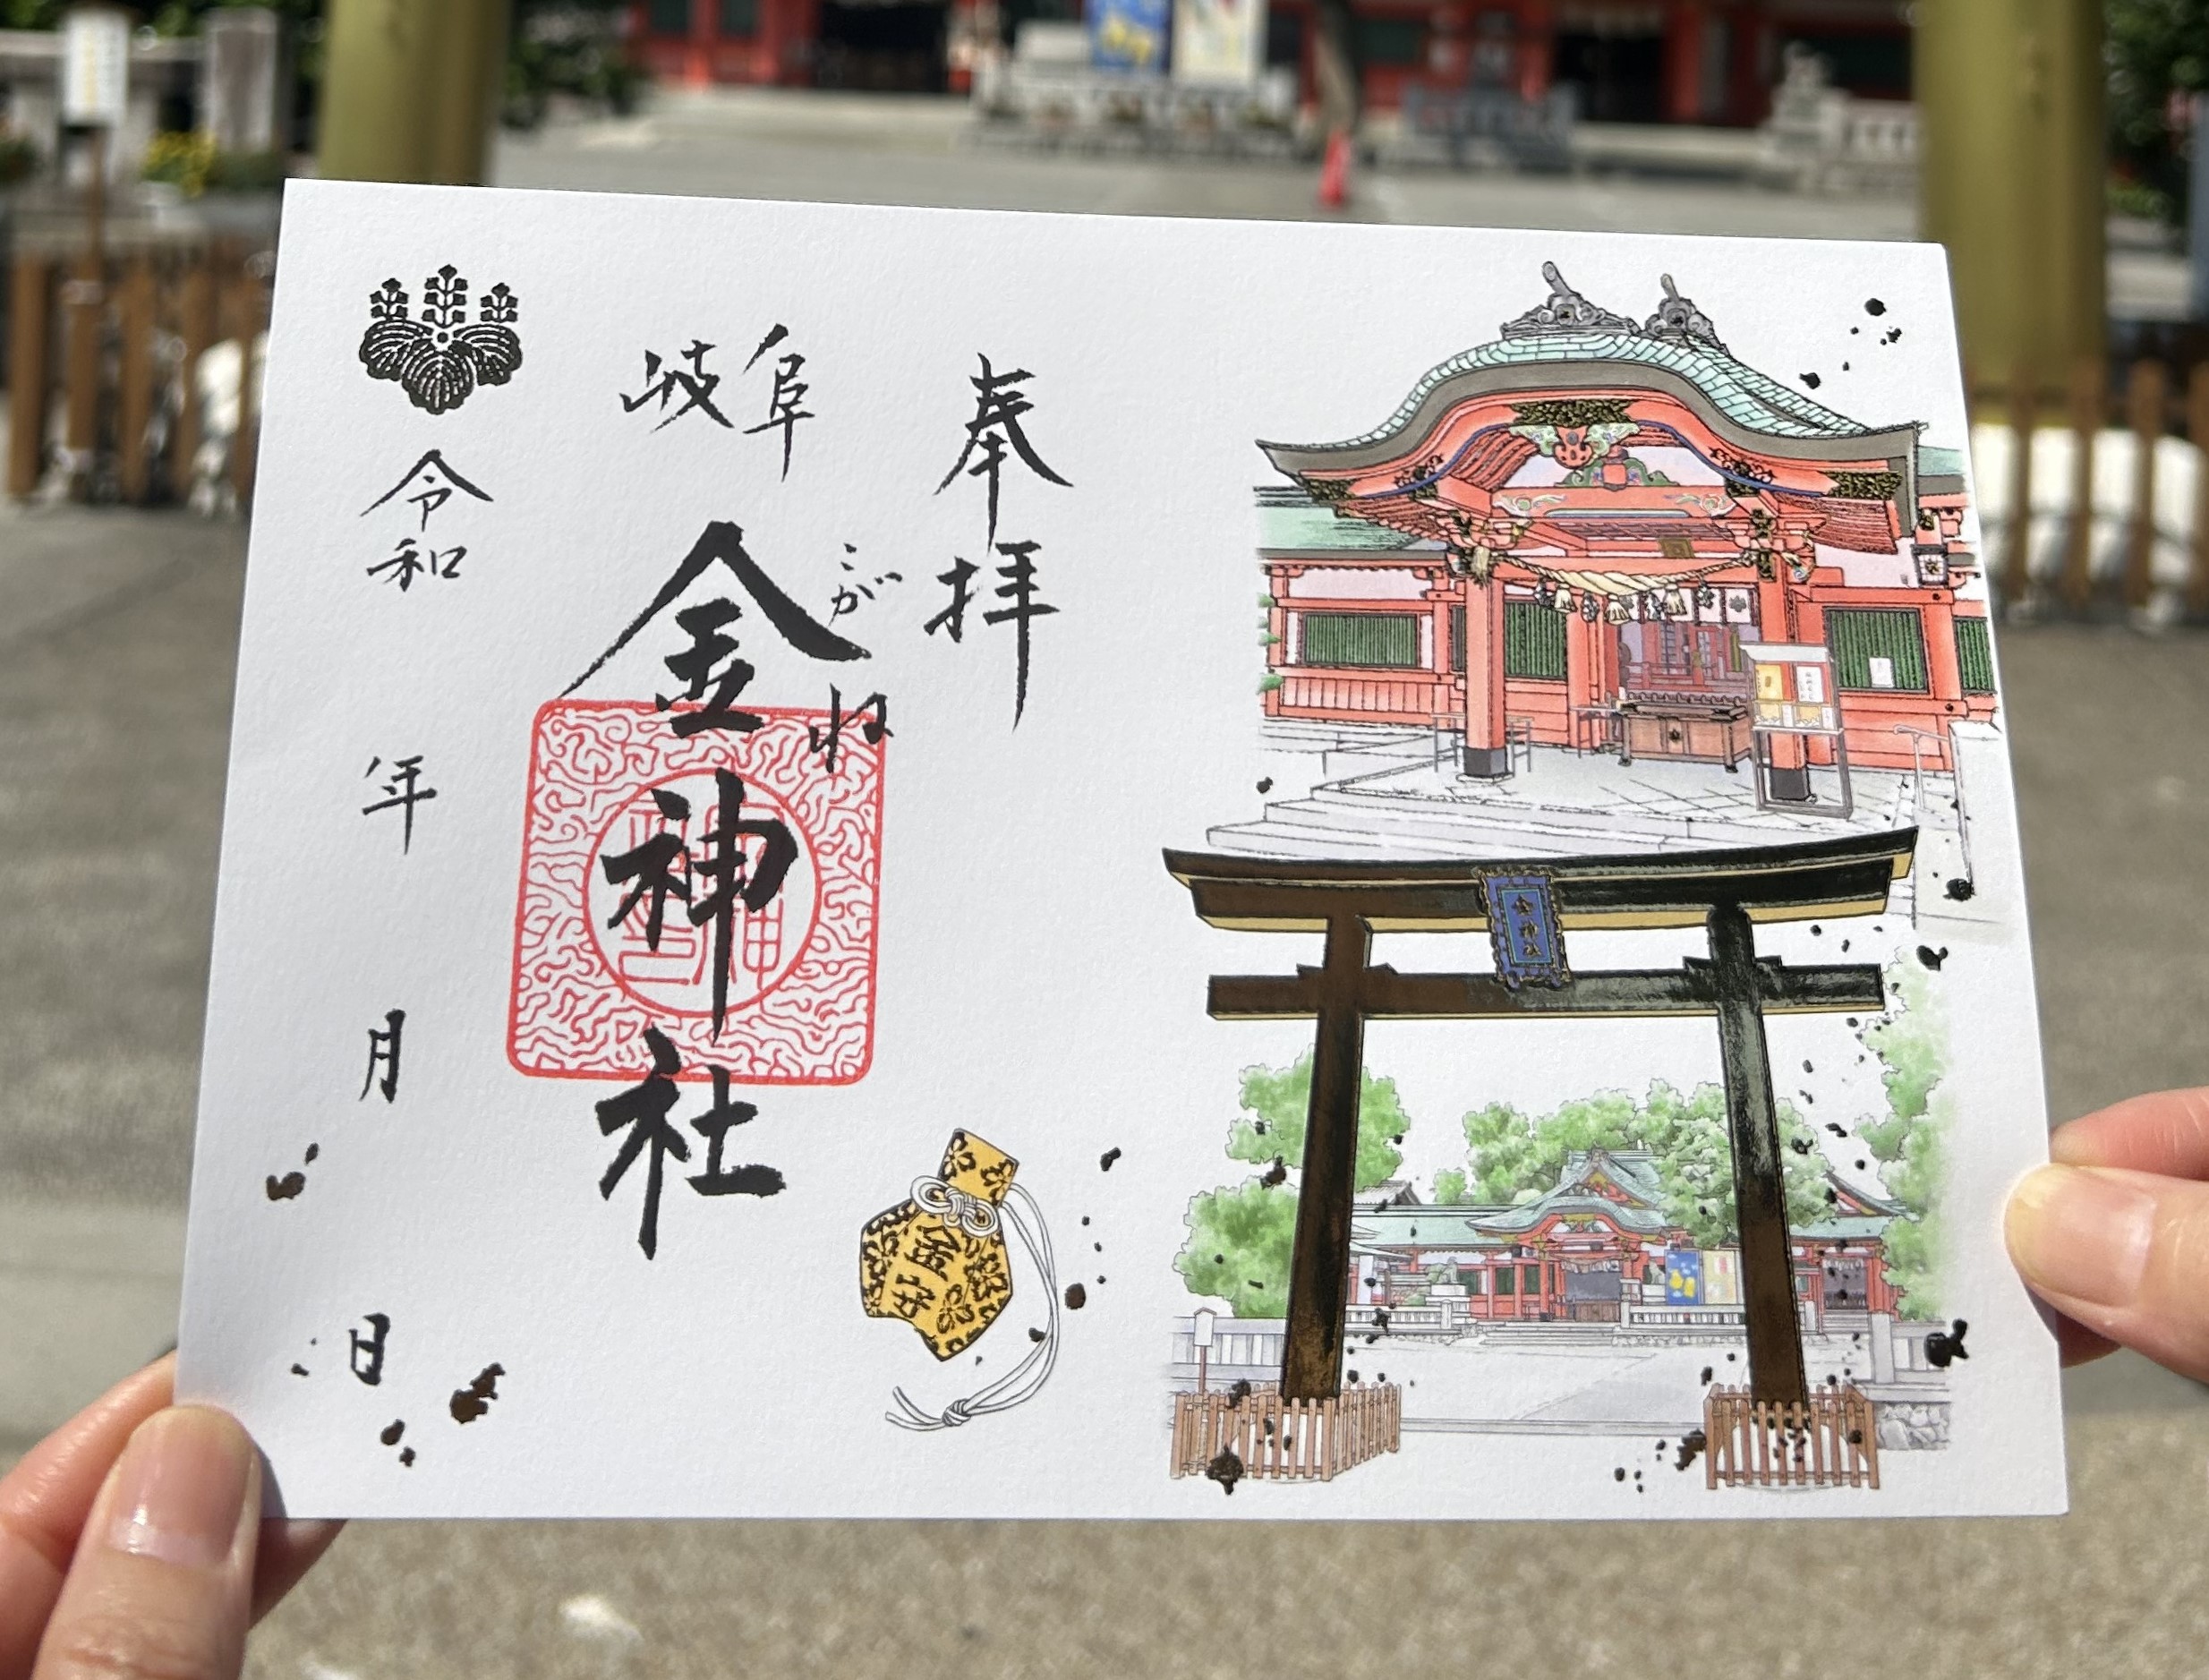 奉拝
岐阜
こがね
金神社
令和
年
月
日
金守
金神社